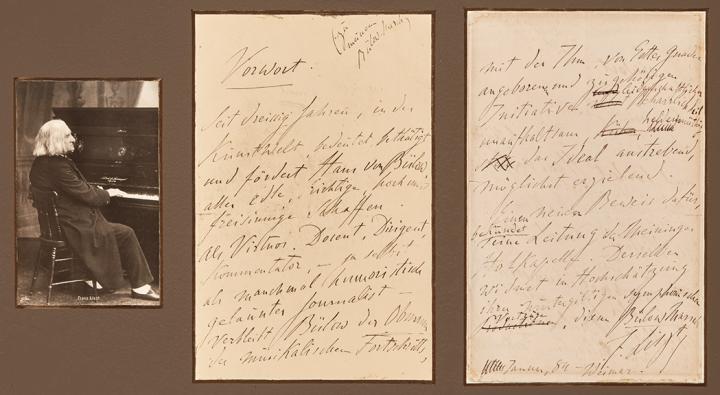 Franz Liszt
Zu
meinem
Bülow Marsch
Vorwort.
Seit dreissig Jahren, in der
Kunstwelt bedeutet, bethätigt
und fördert Hans von Bülow
alles edle, richtige, hoch und
freisinnige Schaffen.
Als Virtuos, Docent, Dirigent,
Commentator – ja selbst
als manchmal humoristisch
gelaunter Journalist –
verbleibt Bülow der
des musikalischen Fortschritts,
mit der Ihm von Gottes Gnaden
angeborene und zugehörigen
leidenschaftlichen
Initiative
unaufhaltsam
das Ideal anstrebend,
möglichst erziehend.
Einen neuen Beweis dafür,
bekundet
seine Leitung der Meininger
Hofkapelle. Derselben
widmet in Hochschätzung
ihrer mustergiltigen symphonischen
Vorträge, diesen Bülow Marsch
F Liszt
Januar, 84 – Weimar.